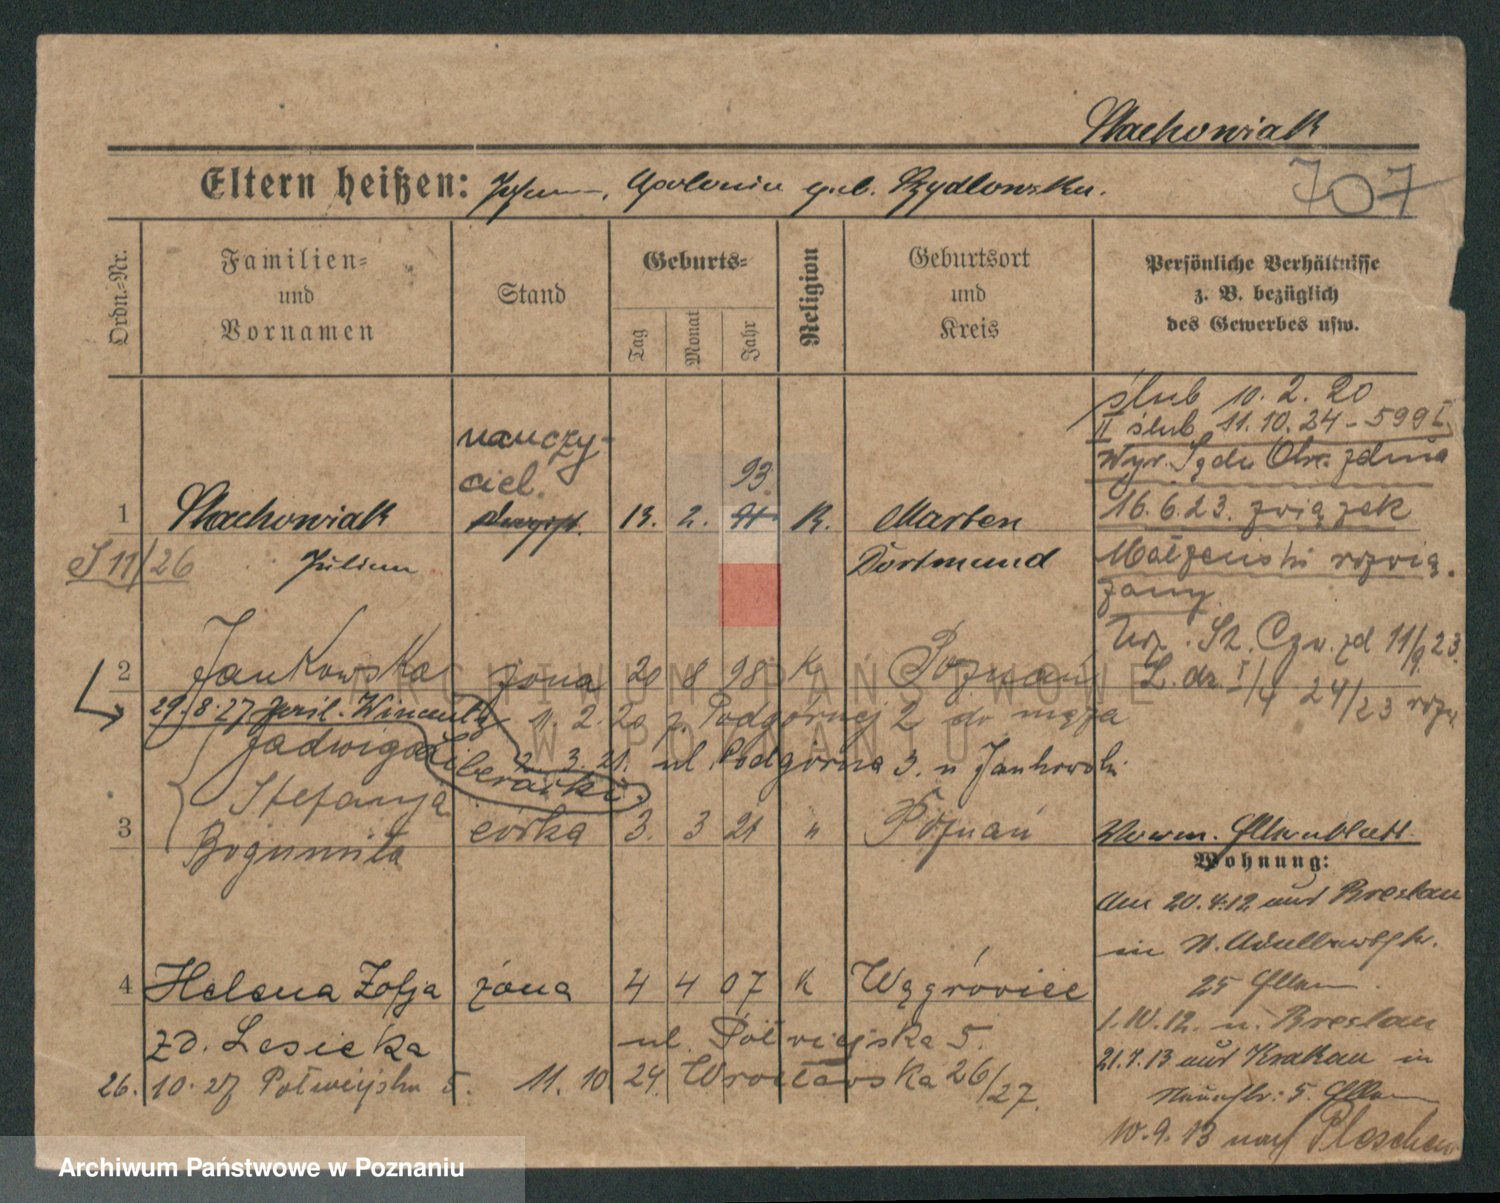 Stachowiak
Eltern heißen: Johann, Apolonia geb. Szydlowska.
707
Ordn.=Nr.
Familien=
und
Vornamen
Stand
Geburts=
Tag
Monat
Jahr
Religion
Geburtsort
und
Kreis
Persönliche Verhältnisse
z. B. bezüglich
des Gewerbes usw.
ślub 10. 2. 20
II ślub 11.10.24 - 599 I
Wyr. Sądu Okr. z dnia
16.6.23. związek
Małżeński rozwią
zany
nauczy-
ciel.
93.
1 Stachowiak 13. 2. 91 K. Marten
S 11/26 Julian Dortmund
Urz. St. Cyw. zd 11/9 23.
2 Jankowska żona 20 8 98 K Poznań
L. dz. I/4 24/23 rozw
29.8.27 Wincenty 11. 2. 20 z Podgórnej 2 do męża
Jadwiga Liberacki. 2. 3. 21. ul Podgórna 3. u Jankowski
Stefanja
3 Bogumiła córka 3. 3 21 " Poznań
Wohnung:
Am 20.4.12 aus Breslau
in
25
4 Helena Zofja żona 4 4 07 K Wągrówiec
zd. Lesicka ul. Półwiejska 5.
1.10.12. n. Breslau
21.7.13 aus Krakau in
26. 10. 27 Półwiejska 5. 11. 10 24. Wrocławska 26/27.
10.9.13 nach Pleschen
ARCHIWUM PAŃSTWOWE
W POZNANIU
Archiwum Państwowe w Poznaniu